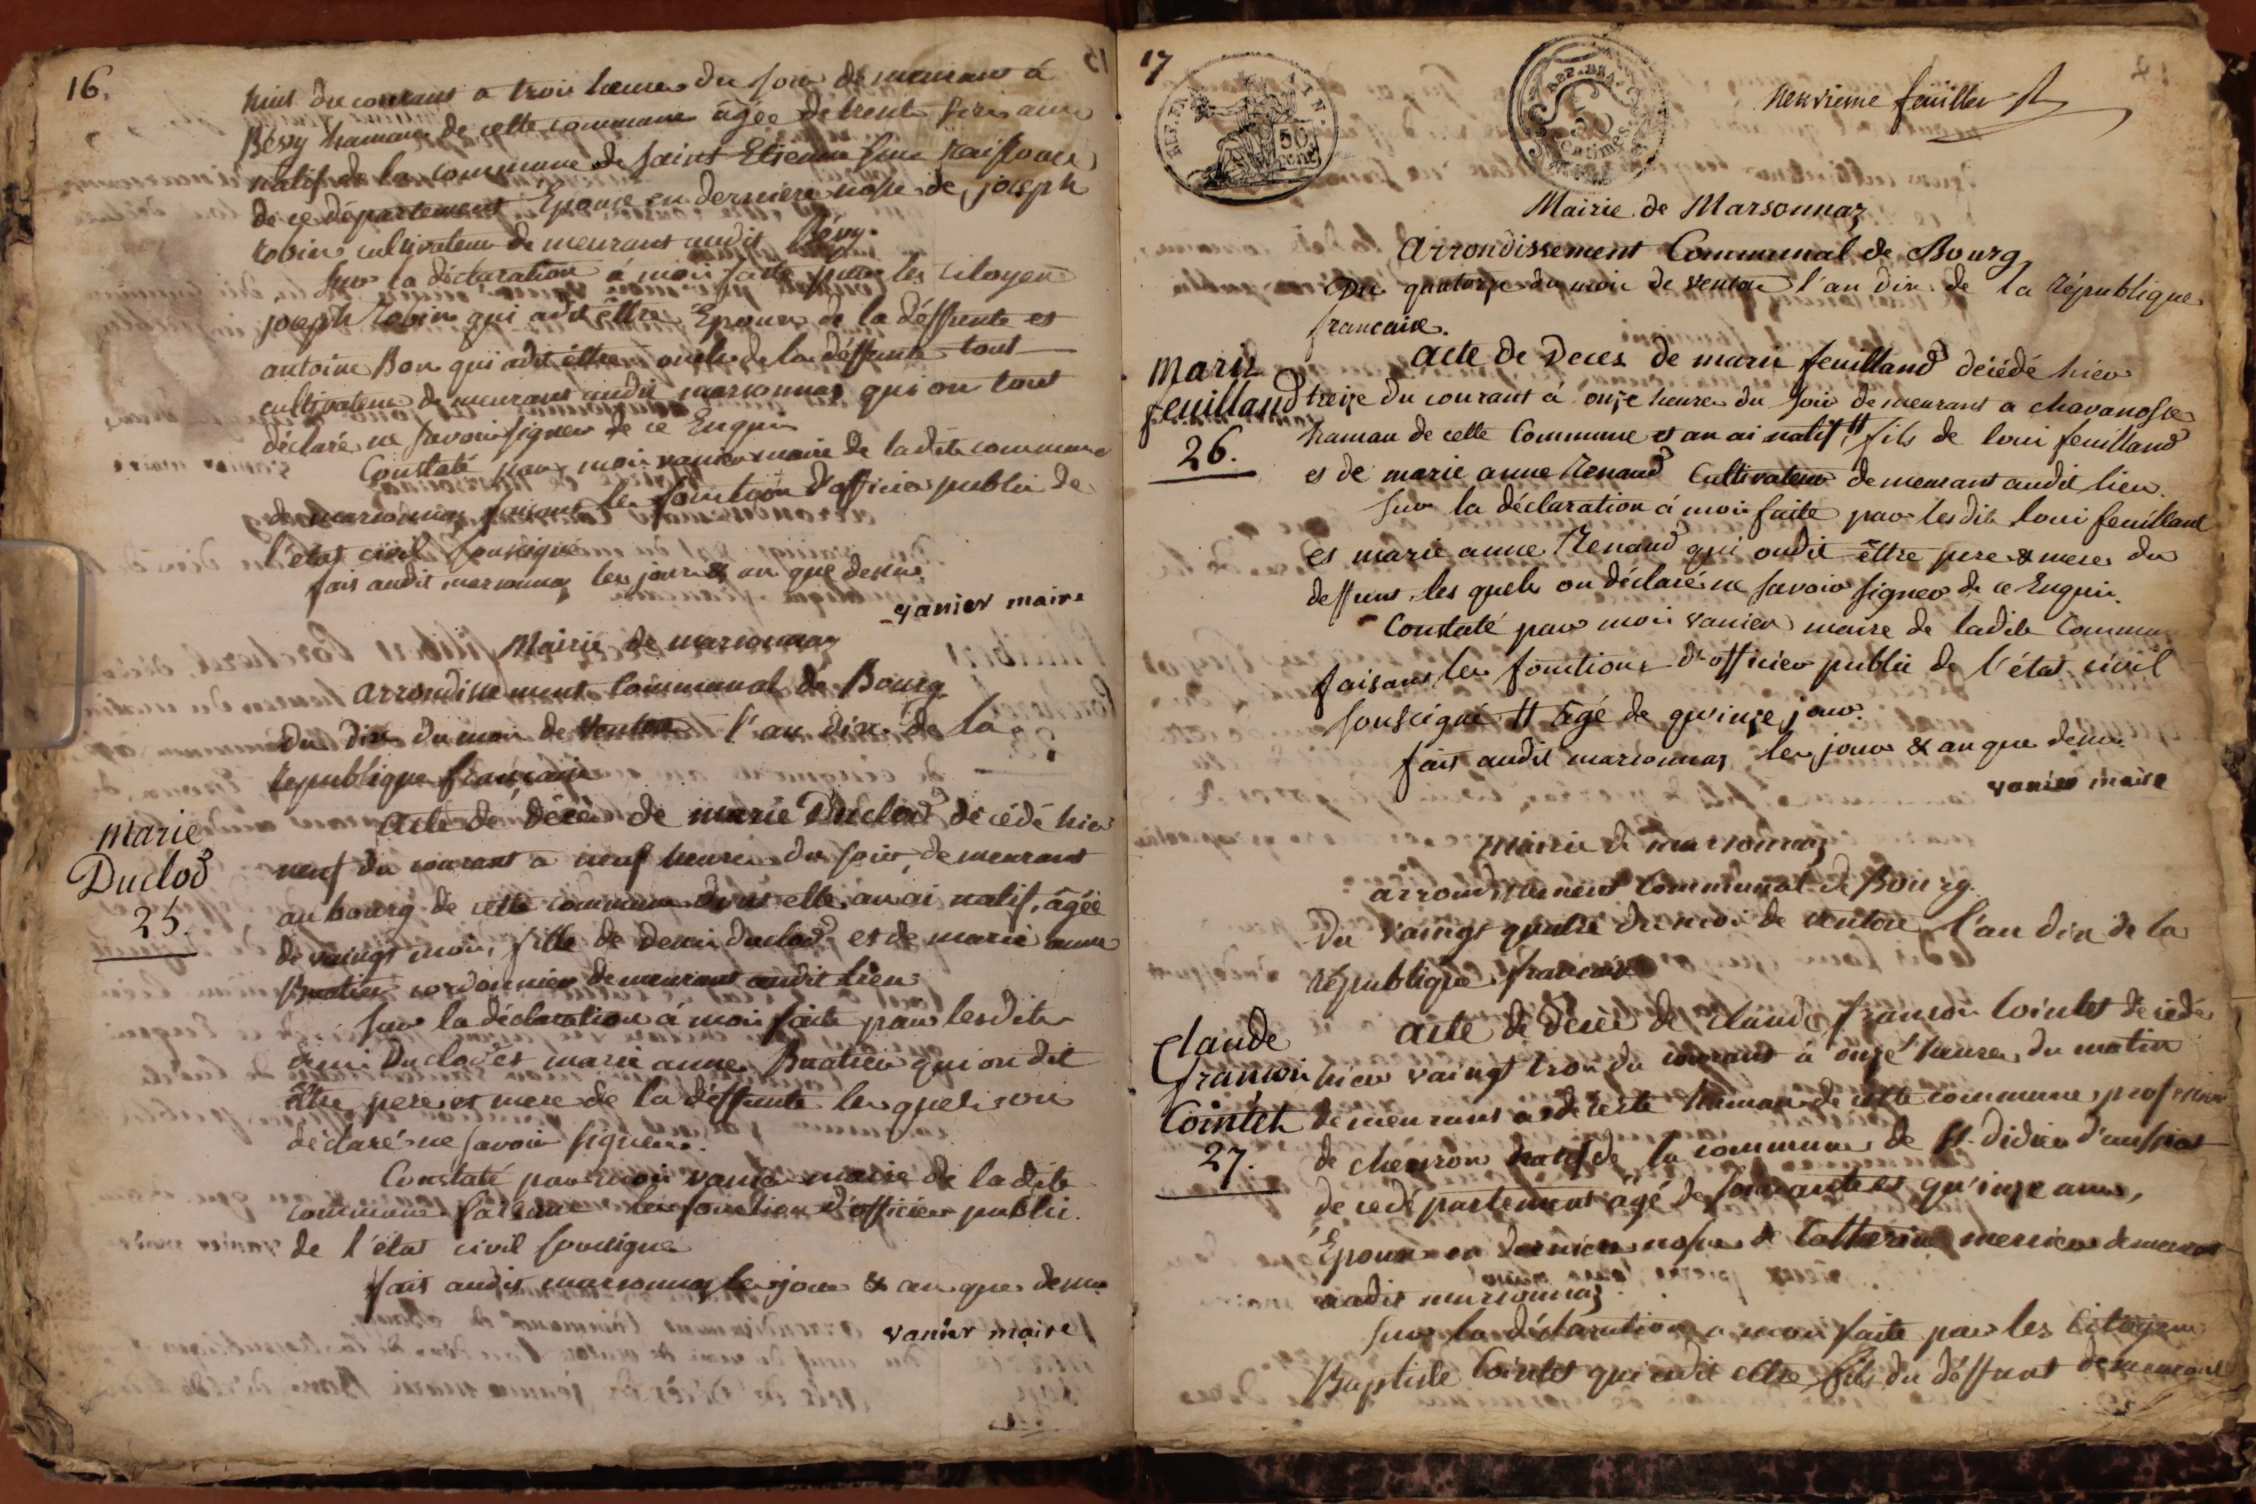 16.
huit du courant a trois heures du soir demeurant á
Bévy hamaux de cette commune âgée de trente six ans
natif de la commune de saint Etienne sur Raissouse
de ce département Epouse en derniere nosse de joseph
Robin cultivateur demeurant audit Bévy.
Sur la déclaration á moi faite par les Citoyen
joseph Robin qui a dit être Epoux de la déffunte et
antoine Bon qui a dit être oncle de la déffunte tout
cultivateur demeurant audit marsonnaz qui on tout
déclaré ne savoir signer de ce Enquis
Constaté par moi vanier maire de ladite commune
de marsonnaz faisant les fonction d'officier public de
l'état civil soussigné
fait audit marsonnaz les jour & an que dessus.
vanier maire
Mairie de marsonnaz
arrondissement Communal de Bourg
du dix du moi de ventose l'an dix de la
République française
Marie
Duclod
25.
acte de décès de marie Duclod décédé hier
neuf du courant a neuf heures du soir, demeurant
au bourg de cette commune dont elle an ai natif, âgée
de vaingt mois, fille de denis duclod et de marie anne
Buatier cordonnier demeurant audit lieu
Sur la déclaration á moi faite par lesdits
denis Duclod et marie anne Buatier qui on dit
être pere et mere de la déffunte les quels on
déclaré ne savoir signer.
Constaté par moi vanier maire de ladite
commune faisant les fonction d'officier public
de l'état civil soussigné
fait audit marsonnaz les jour & an que dessus
vanier maire
17
50
Neuvieme feuillet
Mairie de Marsonnaz
Arrondissement Communal de Bourg
Du quatorze du moi de ventose l'an dix de la République
francaise.
Marie
feuilland
26.
Acte de Deces de marie feuilland décédé hier
treize du courant á onze heures du soir demeurant a chavanosse
hamau de cette Commune et an ai natif, # fils de loui feuilland
et de marie anne Renaud Cultivateur demeurant audit lieu.
Sur la déclaration á moi faite par lesdits loui feuilland
et marie anne Renaud qui ondit être pere & mere du
deffunt, les quels on déclaré ne savoir signer de ce Enquis.
Constaté par moi vanier maire de ladite Commune
faisant les fonctions d'officier public de l'état civil
soussigné # âgé de quinze jour.
fait audit marsonnaz les jour & an que dessus
vanier maire
Mairie de marsonnaz
arrondissement Communal de Bourg.
Du Vaingt quatre du moi de ventose l'an dix de la
République française
Claude
francoi
Cointet
27.
Acte de Décès de claude francoi Cointet décédé
hier vaingt trois du courant á onze heures du matin
demeurant a hamau de cette commune, profession
de cheuron natif de la commune de St didier d'aussiat
de ce département âgé de soixante et quinze ans,
Epoux en derniere nosse de Catherine mercier demeurant
audit marsonnaz
Sur la déclaration a moi faite par les Citoyens
Baptiste Cointet qui a dit etre fils du déffunt demeurant